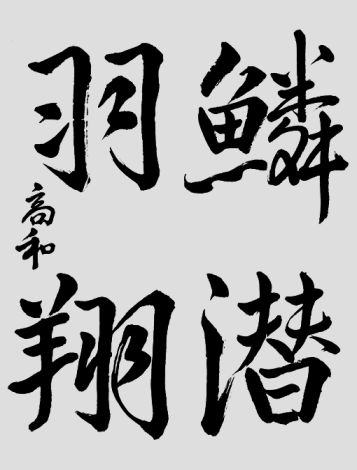 鱗潜
羽翔
高和